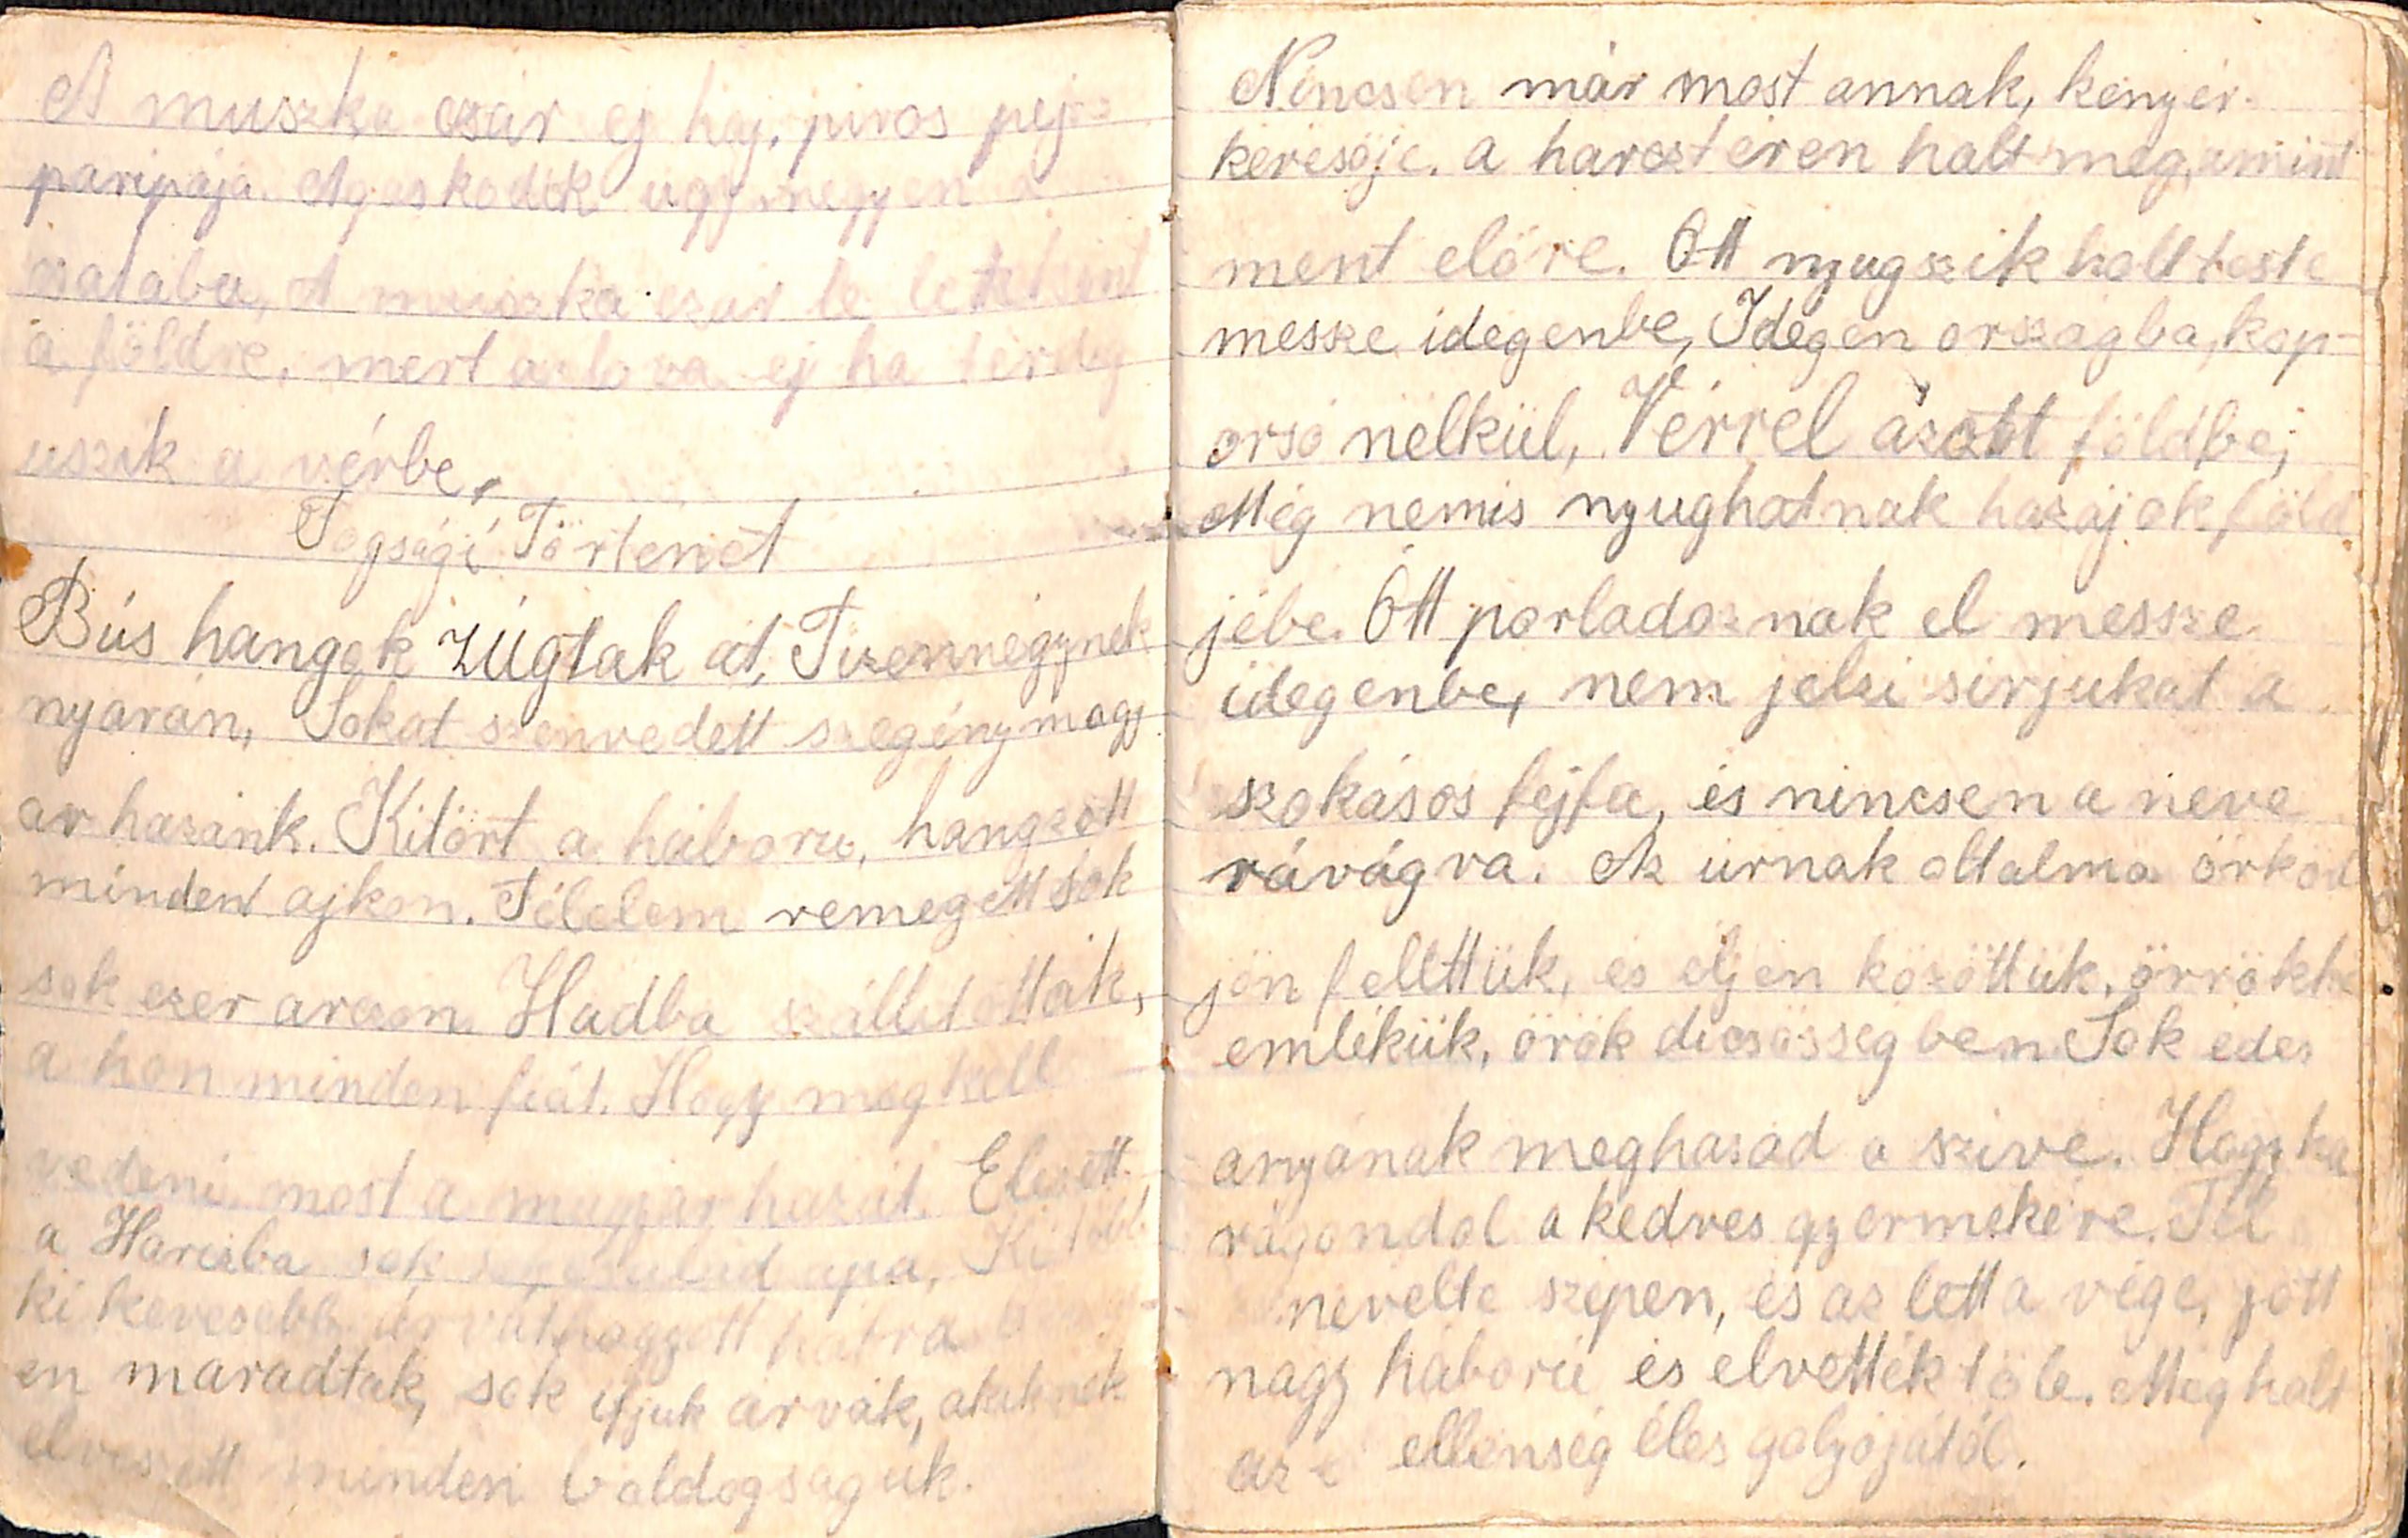 A muszka czár ej haj, piros pej
paripája. Ágaskodik ugy megyen a
csatába, A muszka czár le letekint
a földre, mert a lova ej ha térdig
uszik a vérbe,
Fogsági Történet
Bús hangok zúgtak át, Tizennégynek
nyarán, Sokat szenvedett szegény magy
ar hazánk. Kitört a háboru, hangzott
minden ajkon. Félelem remegett sok
sok ezer arczon Hadba szállitották,
a hon minden fiát. Hogy meg kell
vedeni most a magyar hazát. Elesett
a Harczba sok családapa, Ki több
ki kevesebb árvát hagyott hátra
en maradtak, sok ifjuk árvák, akiknek
elveszett minden boldogságuk.
Nincsen már most annak, kenyér
keresője. a harcztéren halt meg, amint
ment előre. Ott nyugszik holt teste
messze idegenbe, Idegen országba, kop-
orsó nélkül, Vérrel ázott földbe,
Még nemis nyughatnak hazájok föld
jébe. Ott porladoznak el messze
idegenbe, nem jelzi sirjukat a
szokásos fejfa, és nincsen a neve
rávágva. Az urnak oltalma örköd
jön fellttük, és éljen közöttük, örrökke
emlékük, örök dicsösségben Sok édes
anyának meghasad a szive. Hogy ha
rágondol a kedves gyermekére. Fel
nevelte szépen, és az lett a vége, jött
nagy háború és elvették töle. Meg halt
az ellenség éles golyójától.